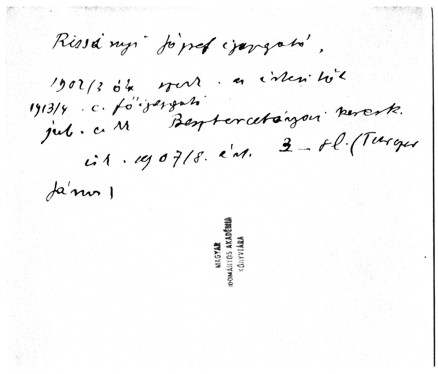 Rissányi József igazgató,
1902/3 óta szerk. a
1913/4. c. főigazgató
jub. Besztercebányai keresk.
isk. 1907/8. ért. 3 (Turger
János)
MAGYAR
TUDOMÁNYOS AKADÉMIA
KÖNYVTÁRA